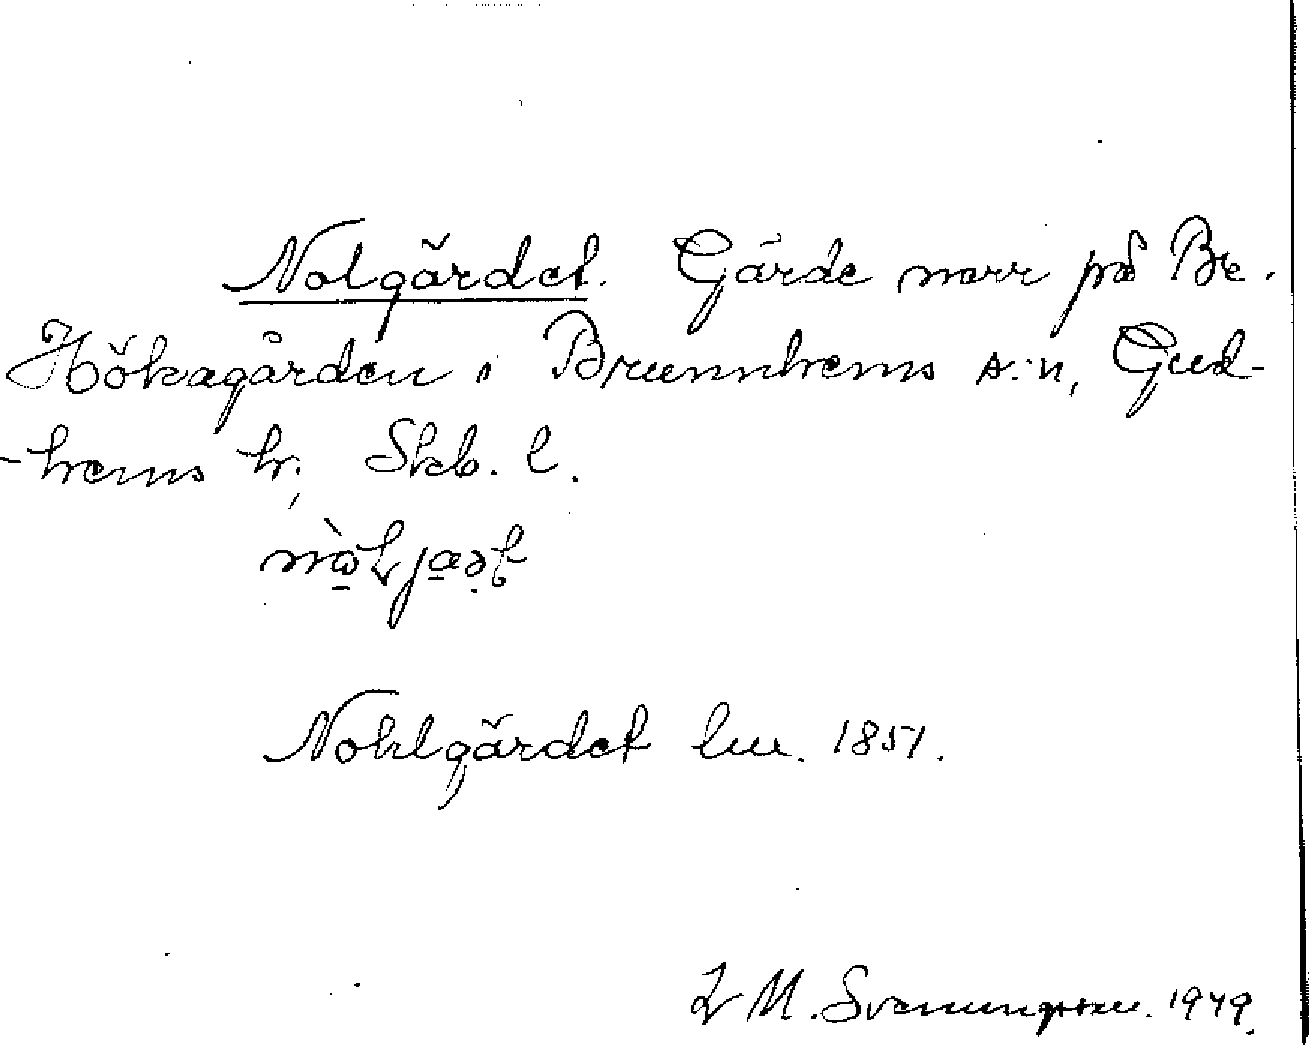 Nolgärdet. Gärde norr på Br.
Hökagården i Brunnhems s:n, Gud-
-hems hr, Skb. l.
Nohlgärdet lm. 1851.
M. Svenungsson. 1949.